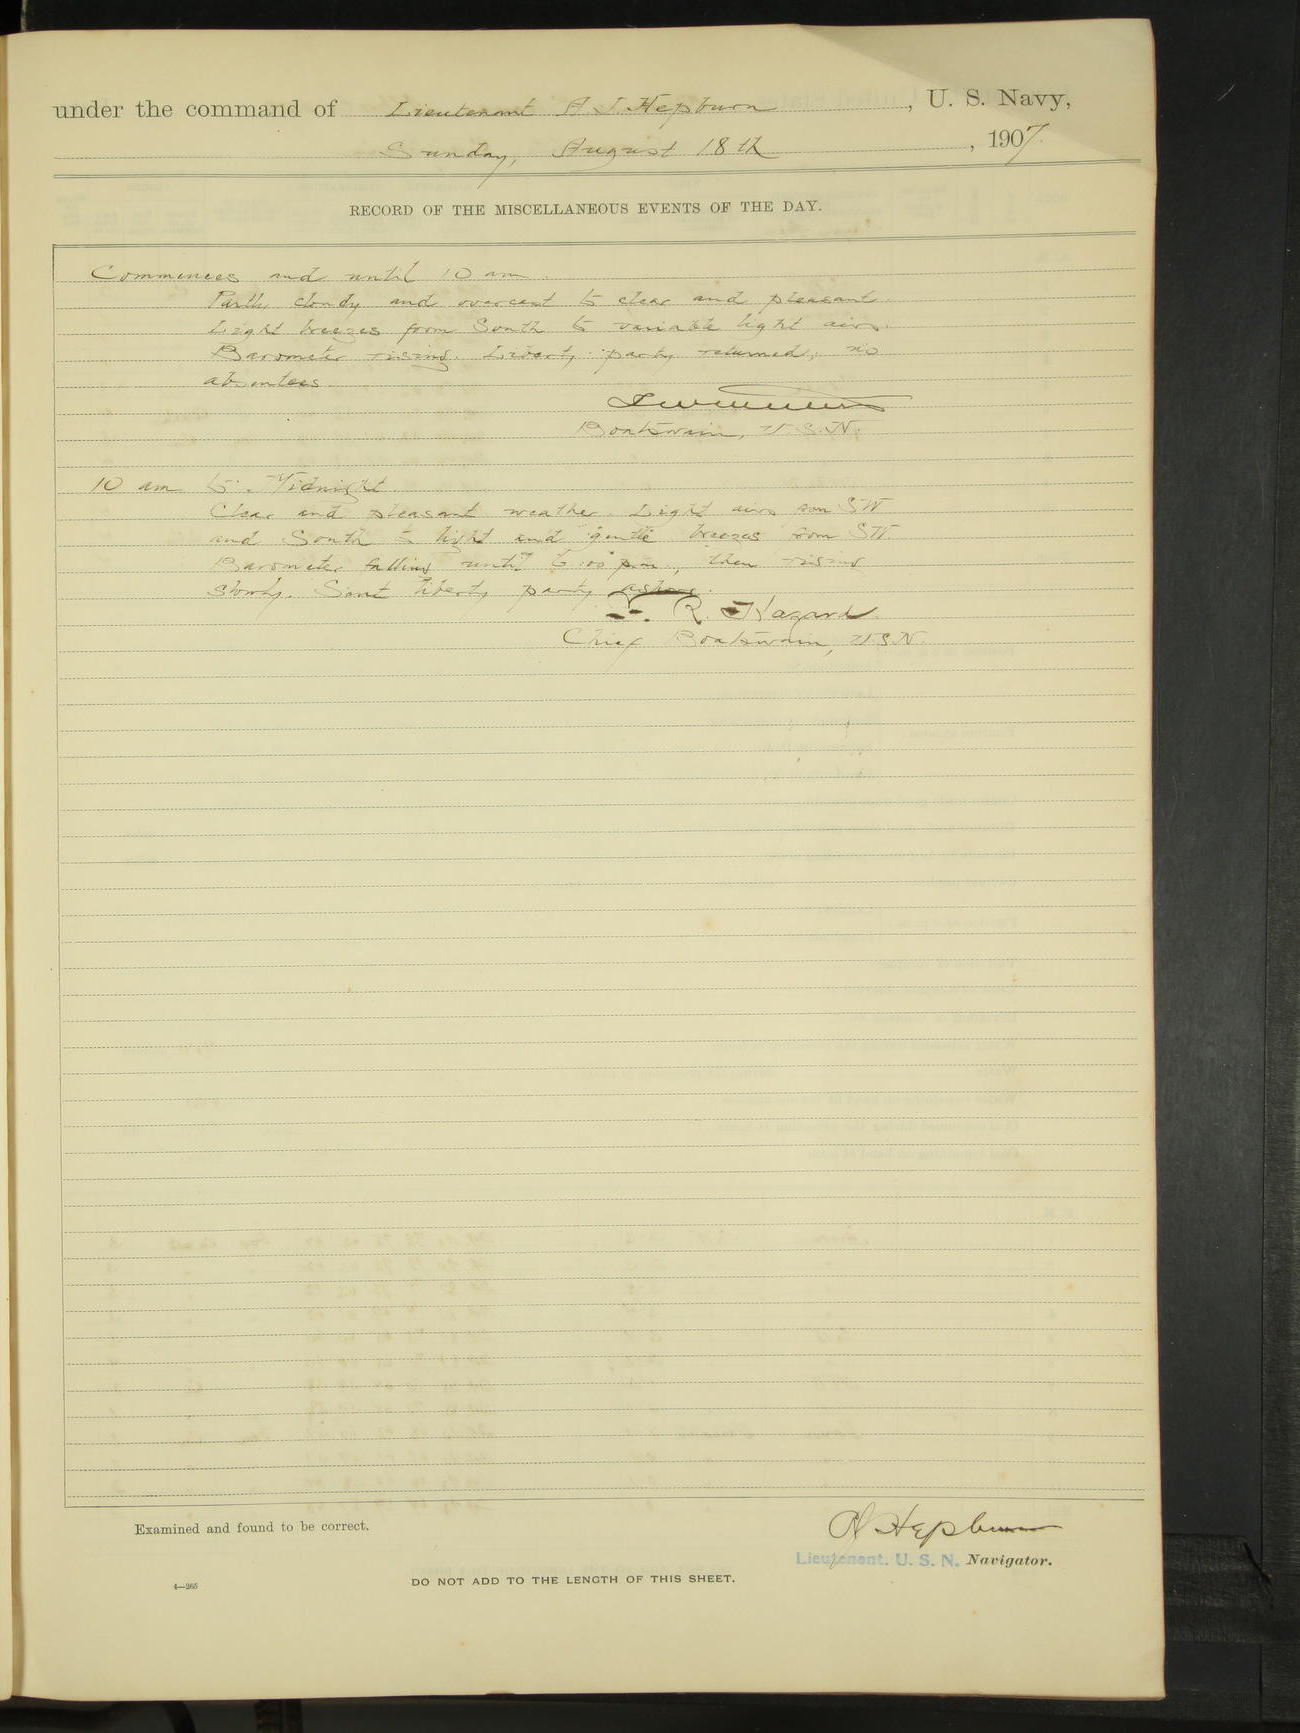 under the command of Lieutenant A J Hepburn, U. S. Navy,
Sunday, August 18th, 1907.
RECORD OF THE MISCELLANEOUS EVENTS OF THE DAY.
Commences and until 10 am.
Partly cloudy and overcast to clear and pleasant.
Light breezes from South to variable light airs.
Barometer rising. Liberty party returned; no
absentees.
Boatswain, U.S.N.
10 am to Midnight.
Clear and pleasant weather. Light airs from SW
and South to light and gentle breezes from SW
Barometer falling until 6:00 pm, then rising
slowly. Sent liberty party ashore.
F. R. Hazard
Chief Boatswain, U.S.N.
Examined and found to be correct.
AJ Hepburn
Lieutenant. U. S. N. Navigator.
4—265
DO NOT ADD TO THE LENGTH OF THIS SHEET.